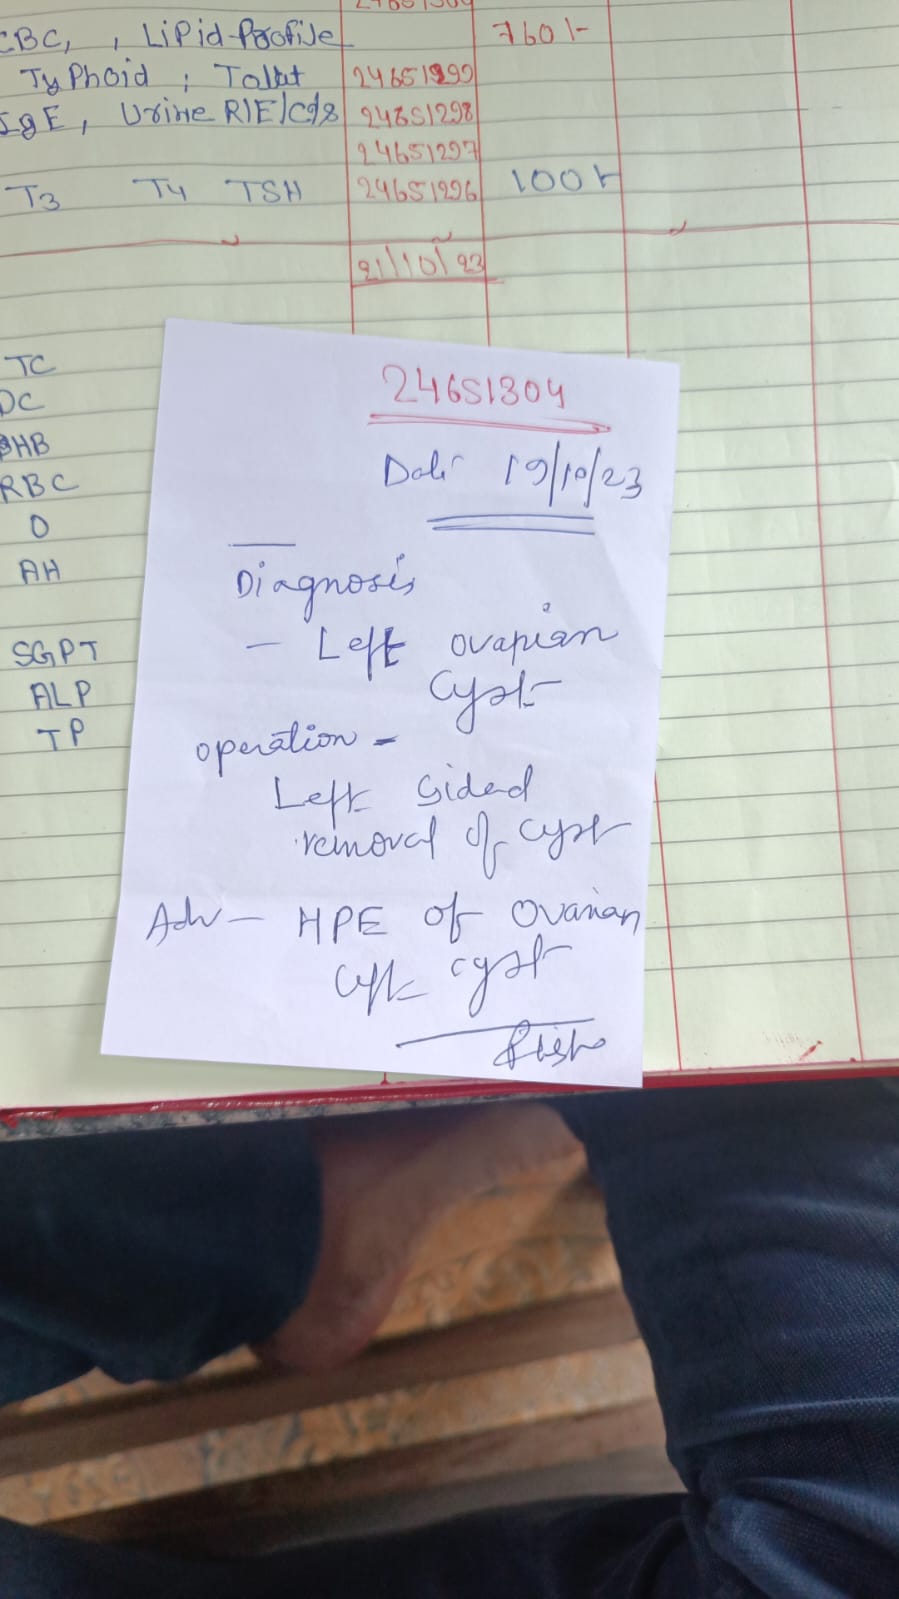 CBC, , Lipid Profile 760/-
Typhoid ; Total 24651299
IgE, Urine R/E/C/S 24651298
24651297
T3 T4 TSH 24651296 100/-
21/10/23
TC
DC
HB
RBC
O
AH
SGPT
ALP
TP
24651304
Date 19/10/23
Diagnosis
- Left ovarian
Cyst
operation -
Left sided
removal of cyst
Adv - HPE of Ovarian
cyst